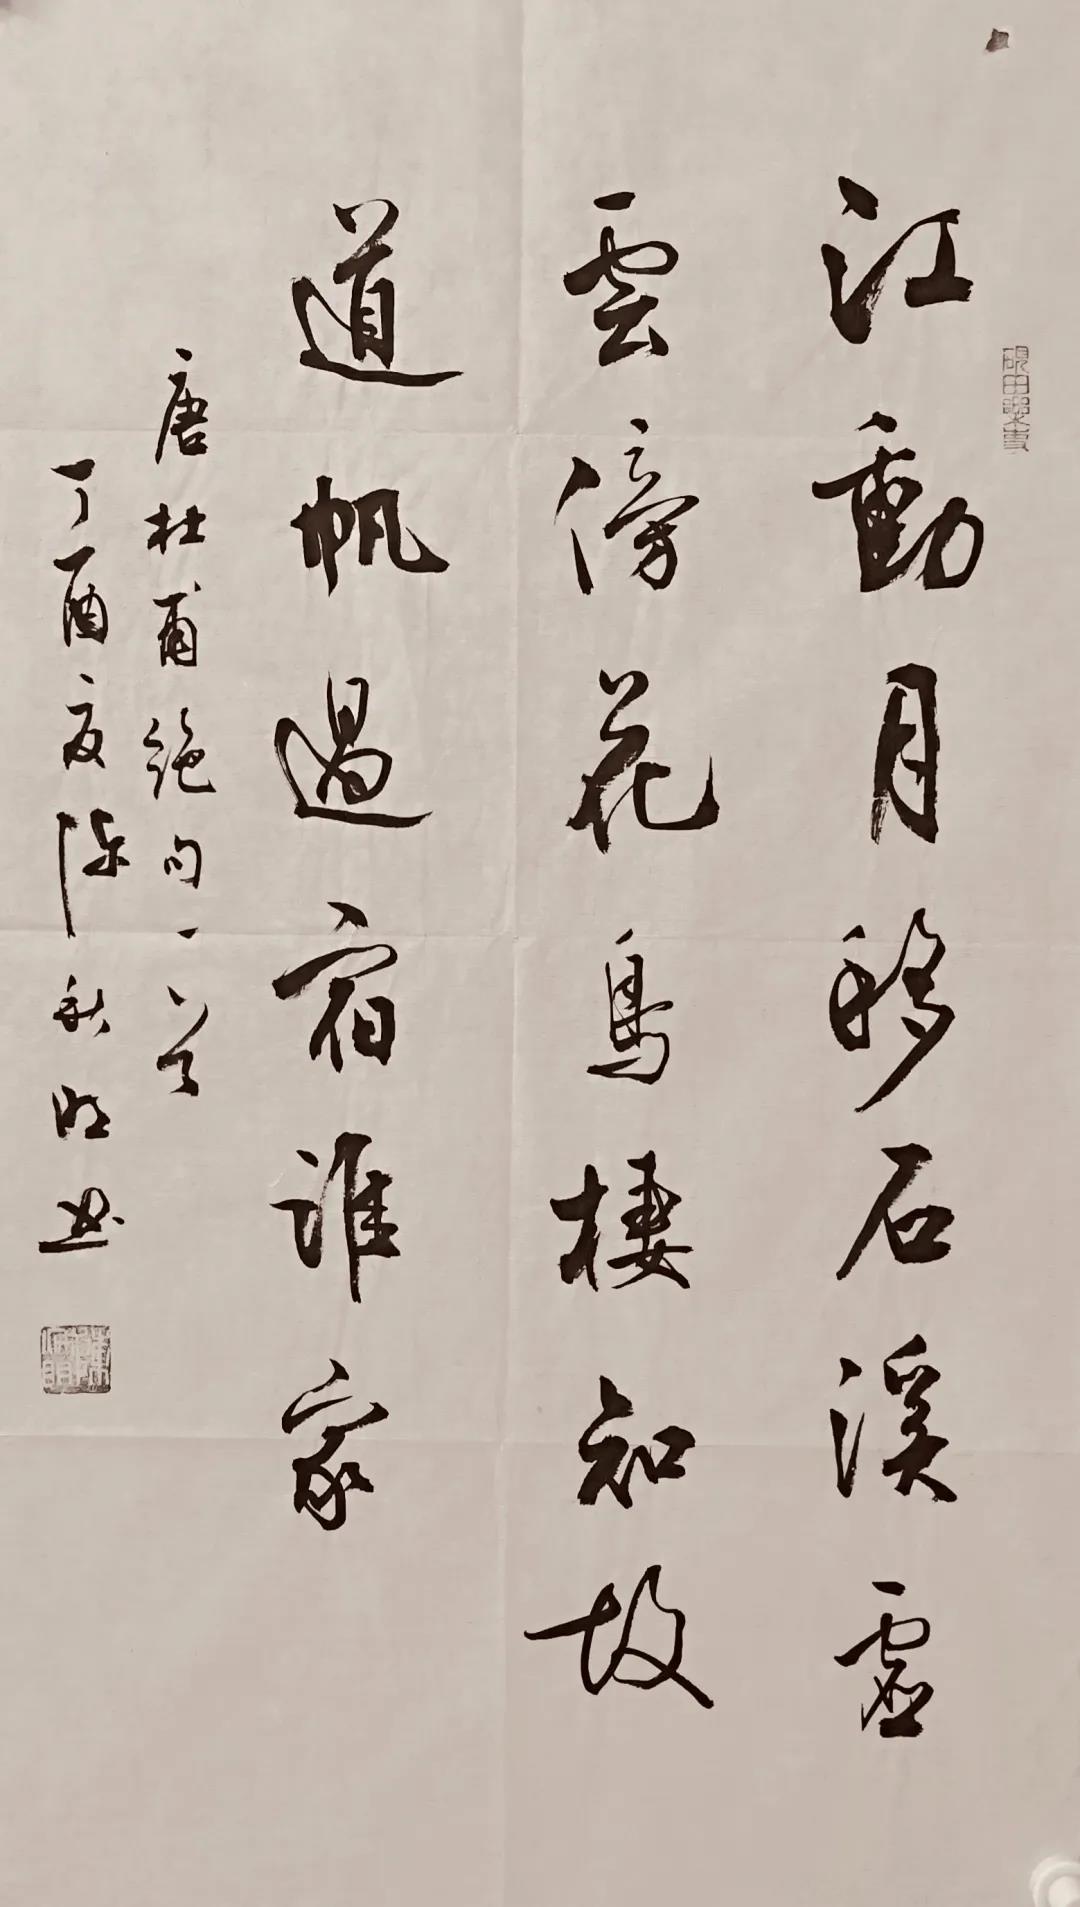 江動月移石溪虛
雲傍花鳥棲知故
道帆過宿誰家
唐杜甫絕句一首
丁酉夏陳秋明書
硯田樂事